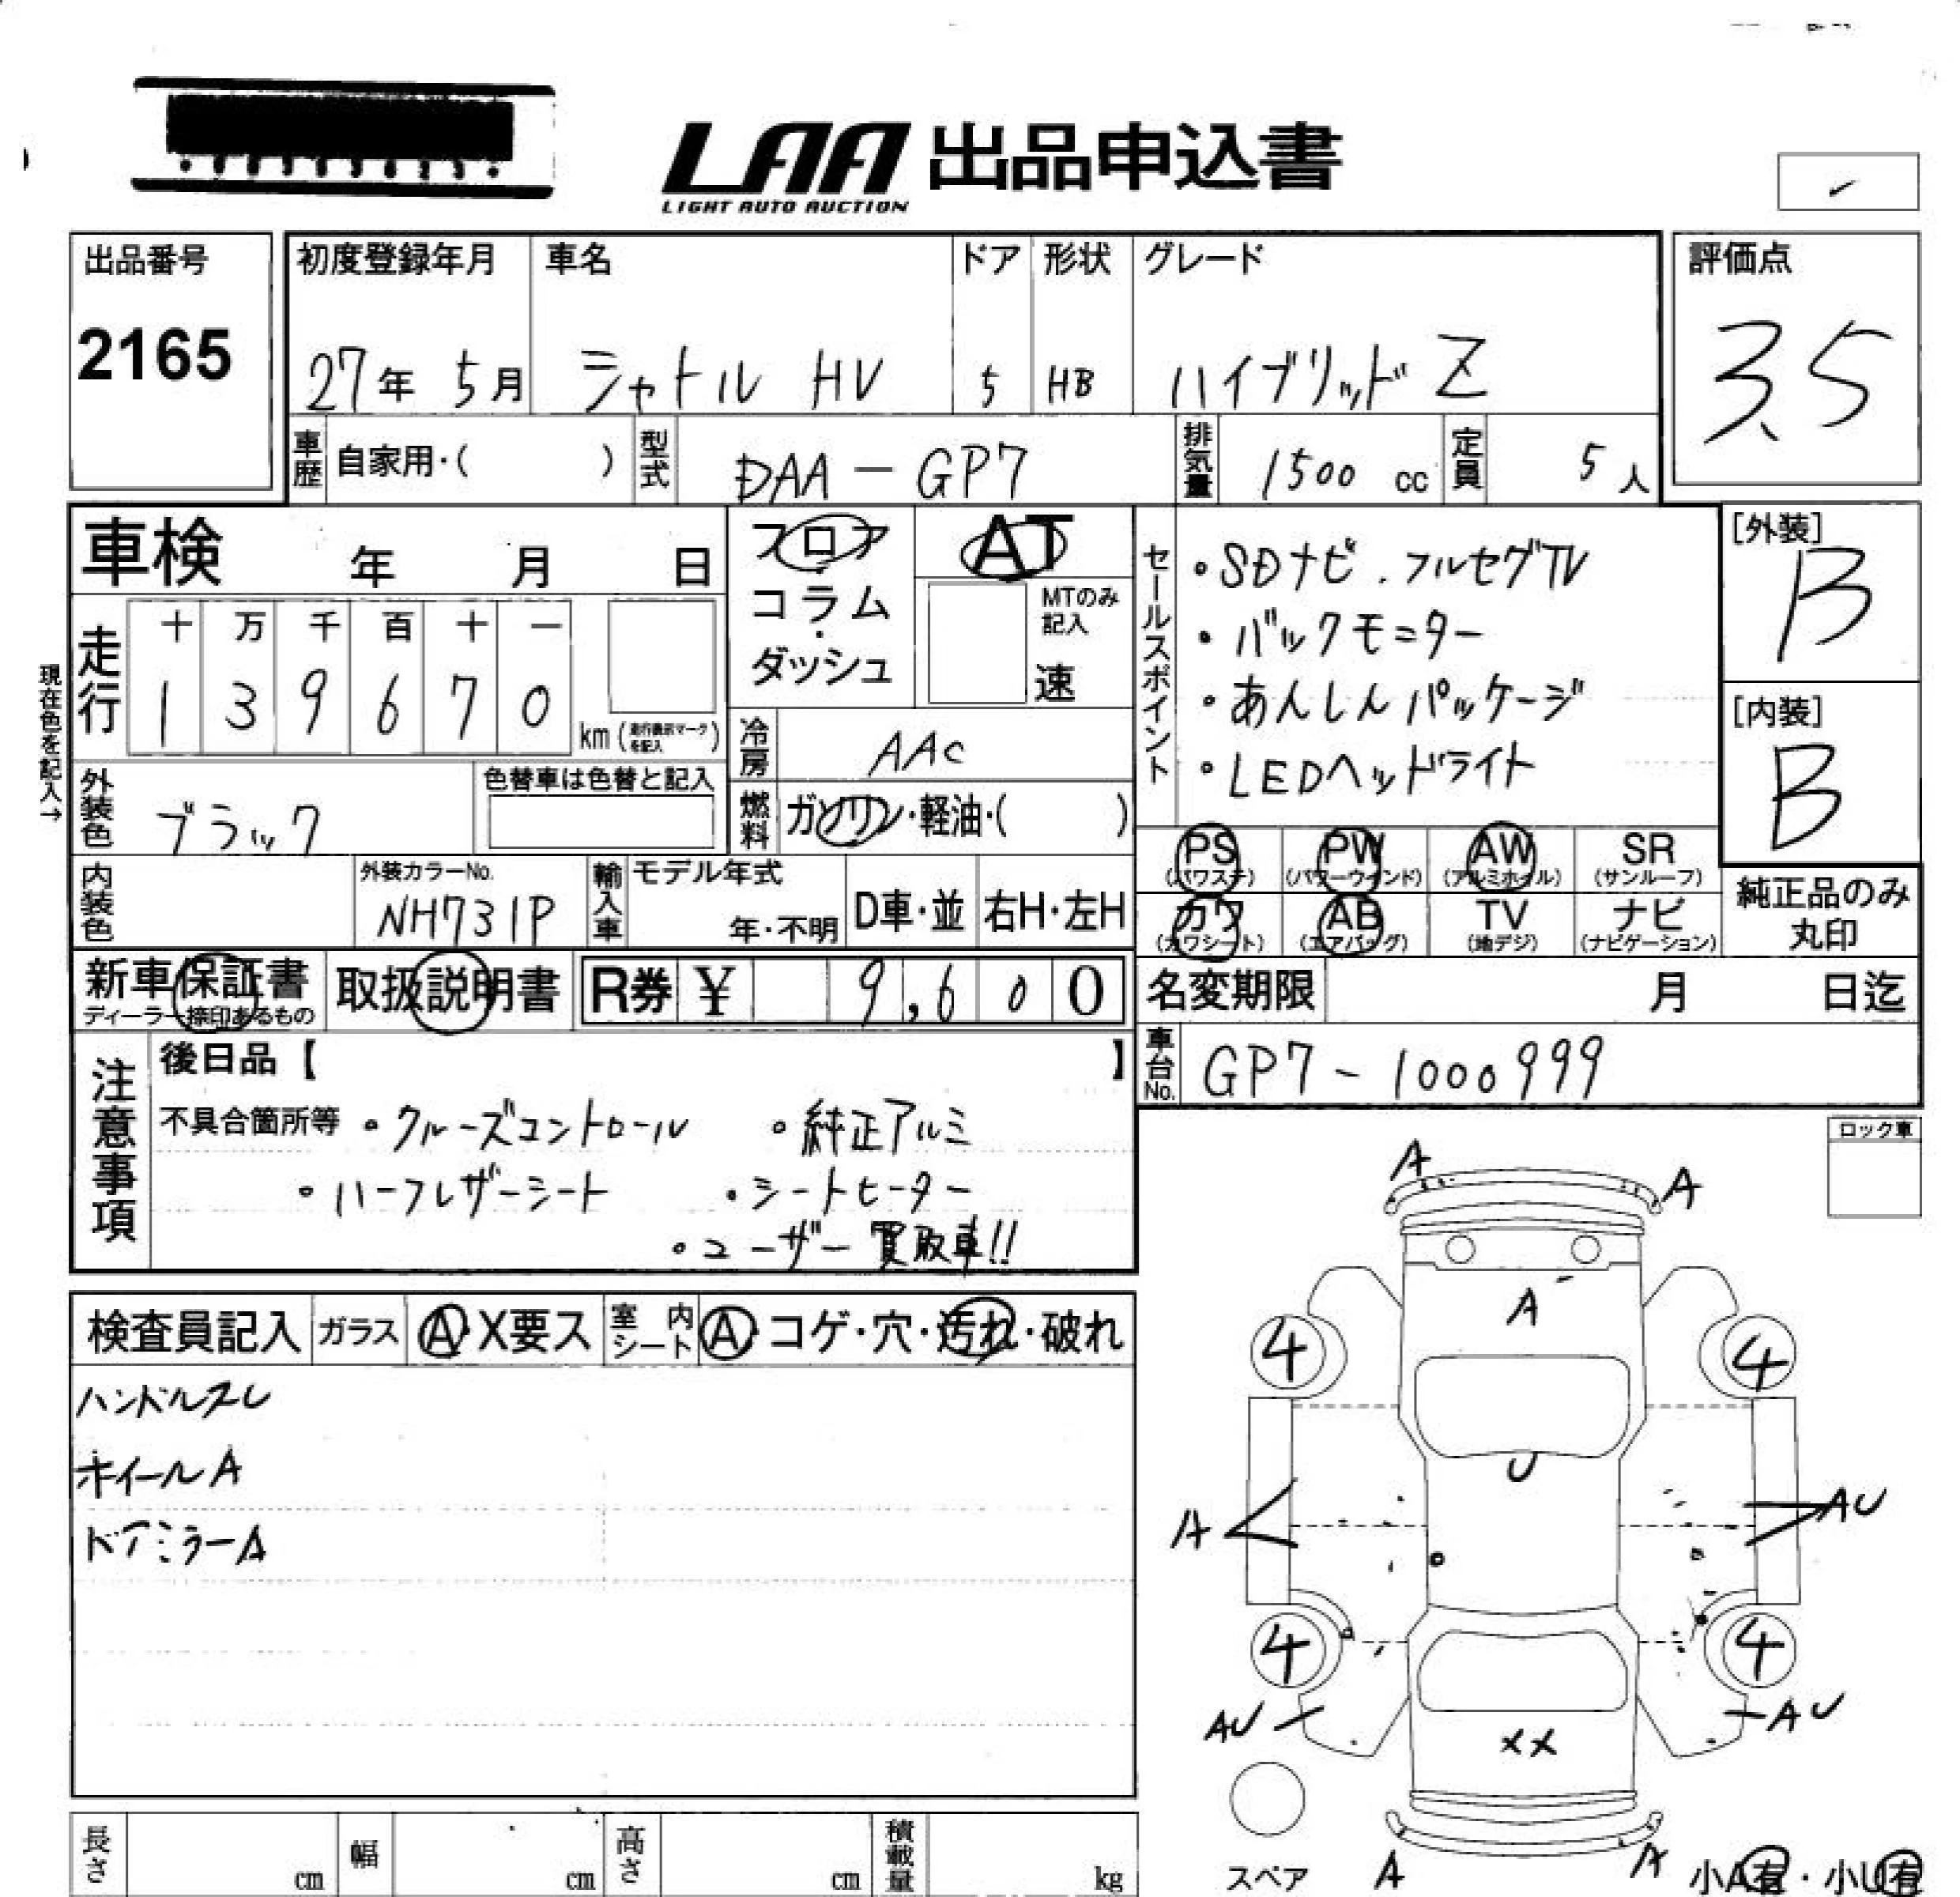 LAA 出品申込書
LIGHT AUTO AUCTION
出品番号
2165
初度登録年月
27年 5月
車名
シャトル HV
ドア
5
形状
HB
グレード
ハイブリッド Z
評価点
3.5
車歴 自家用・( )
型式 DAA-GP7
排気量 1500 cc
定員 5人
車検 年 月 日
フロア・コラム・ダッシュ
AT
MTのみ記入
速
走行
十 万 千 百 十 一
1 3 9 6 7 0
km
現在色を記入→
冷房 AAC
外装色 ブラック
色替車は色替と記入
燃料 ガソリン・軽油・( )
内装色
外装カラーNo.
NH731P
輸入車
モデル年式
年・不明
D車・並
右H・左H
セールスポイント
・SDナビ.フルセグTV
・バックモニター
・あんしんパッケージ
・LEDヘッドライト
[外装]
B
[内装]
B
PS (パワステ)
PW (パワーウインド)
AW (アルミホイル)
SR (サンルーフ)
カワ (カワシート)
AB (エアバッグ)
TV (地デジ)
ナビ (ナビゲーション)
純正品のみ丸印
新車保証書
ディーラー捺印あるもの
取扱説明書
R券 ¥ 9,600
名変期限 月 日迄
車台No. GP7-1000999
注意事項
後日品【 】
不具合箇所等 ・クルーズコントロール ・純正アルミ
・ハーフレザーシート ・シートヒーター
・ユーザー買取車!!
ロック車
検査員記入
ガラス A・X要ス
室内シート A・コゲ・穴・汚れ・破れ
ハンドルスレ
ホイールA
ドアミラーA
A A
A
4 4
U
A AU
4 4
AU AU
XX
A A
スペア
小A有・小U有
長さ cm
幅 cm
高さ cm
積載量 kg